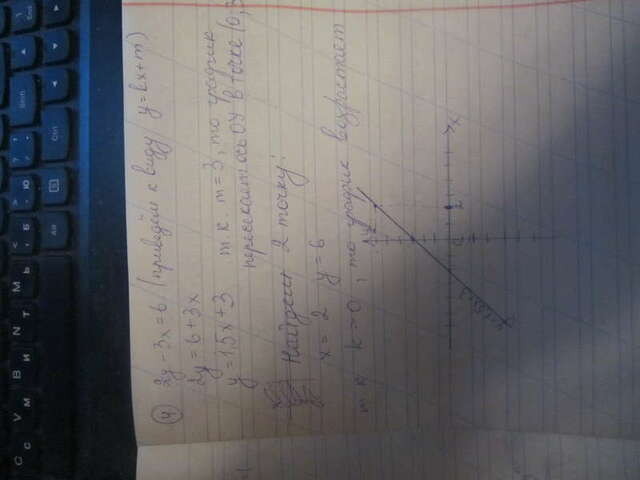 ④ 2y - 3x = 6 (приведём к виду y = kx + m)
2y = 6 + 3x
y = 1,5x + 3 т.к. m = 3, то график
пересекает ось OY в точке (0; 3
Найдем 2 точку:
x = 2 y = 6
т.к. k > 0, то график возрастает
x
2
y = 1,5x + 3
Shift
Alt
Ctrl
End